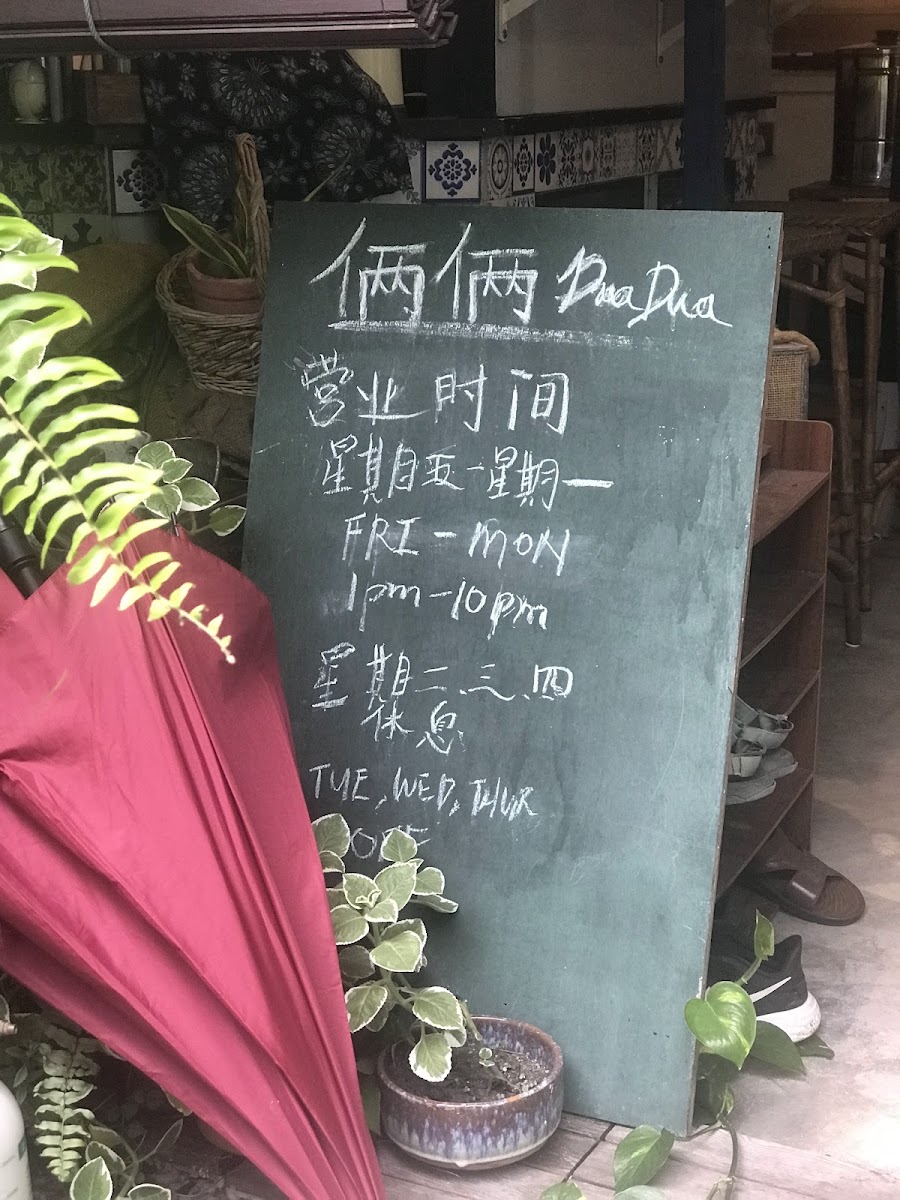 俩俩 DuaDua
营业时间
星期五-星期一
FRI - MON
1pm-10pm
星期二、三、四
休息
TUE, WED, THUR